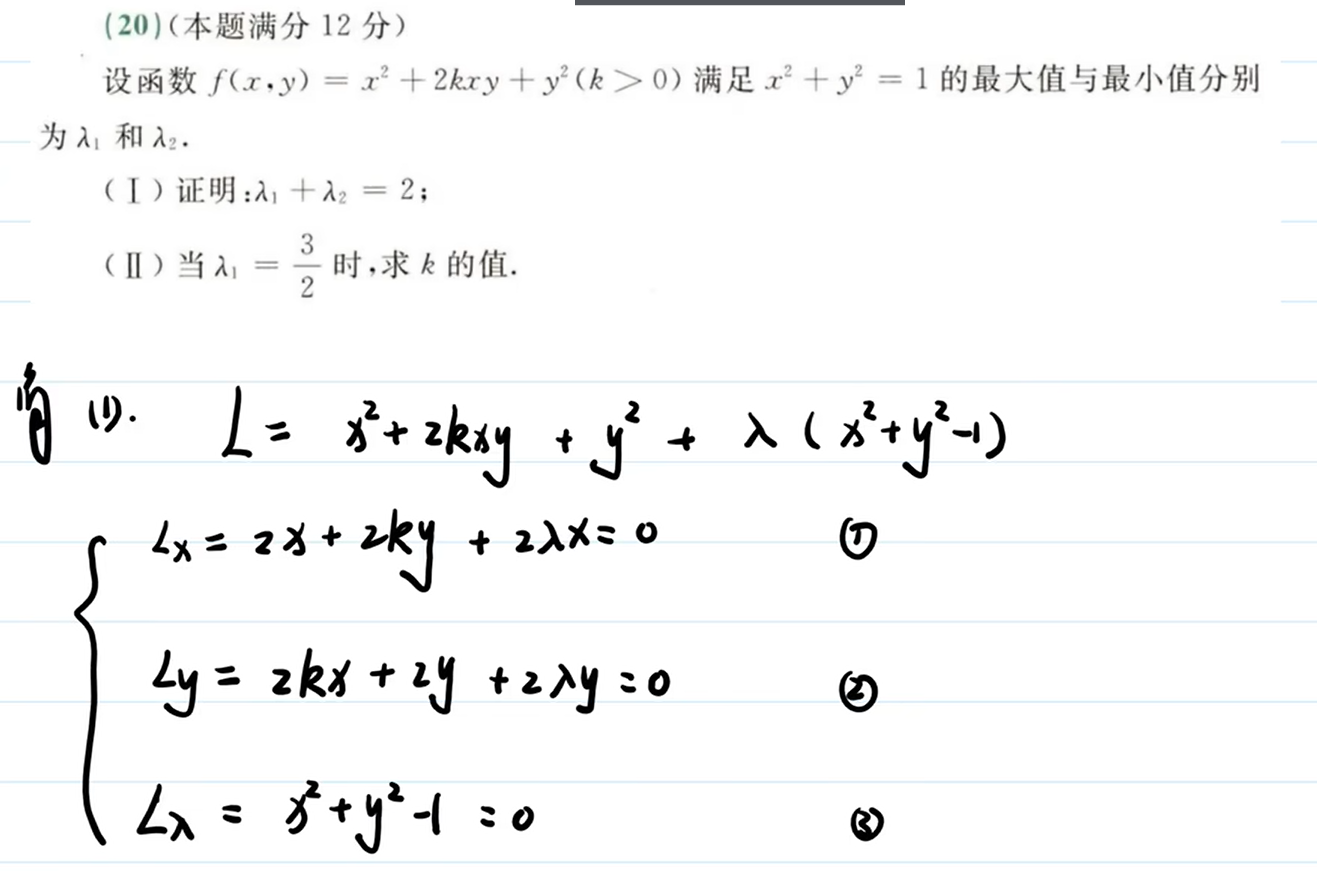 (20)(本题满分 12 分)
设函数 f(x,y) = x² + 2kxy + y²(k > 0) 满足 x² + y² = 1 的最大值与最小值分别
为 λ₁ 和 λ₂.
(Ⅰ)证明:λ₁ + λ₂ = 2;
(Ⅱ)当 λ₁ = 3/2 时,求 k 的值.
(1). L = x² + 2kxy + y² + λ(x²+y²-1)
Lx = 2x + 2ky + 2λx = 0 ①
Ly = 2kx + 2y + 2λy = 0 ②
Lλ = x² + y² - 1 = 0 ③